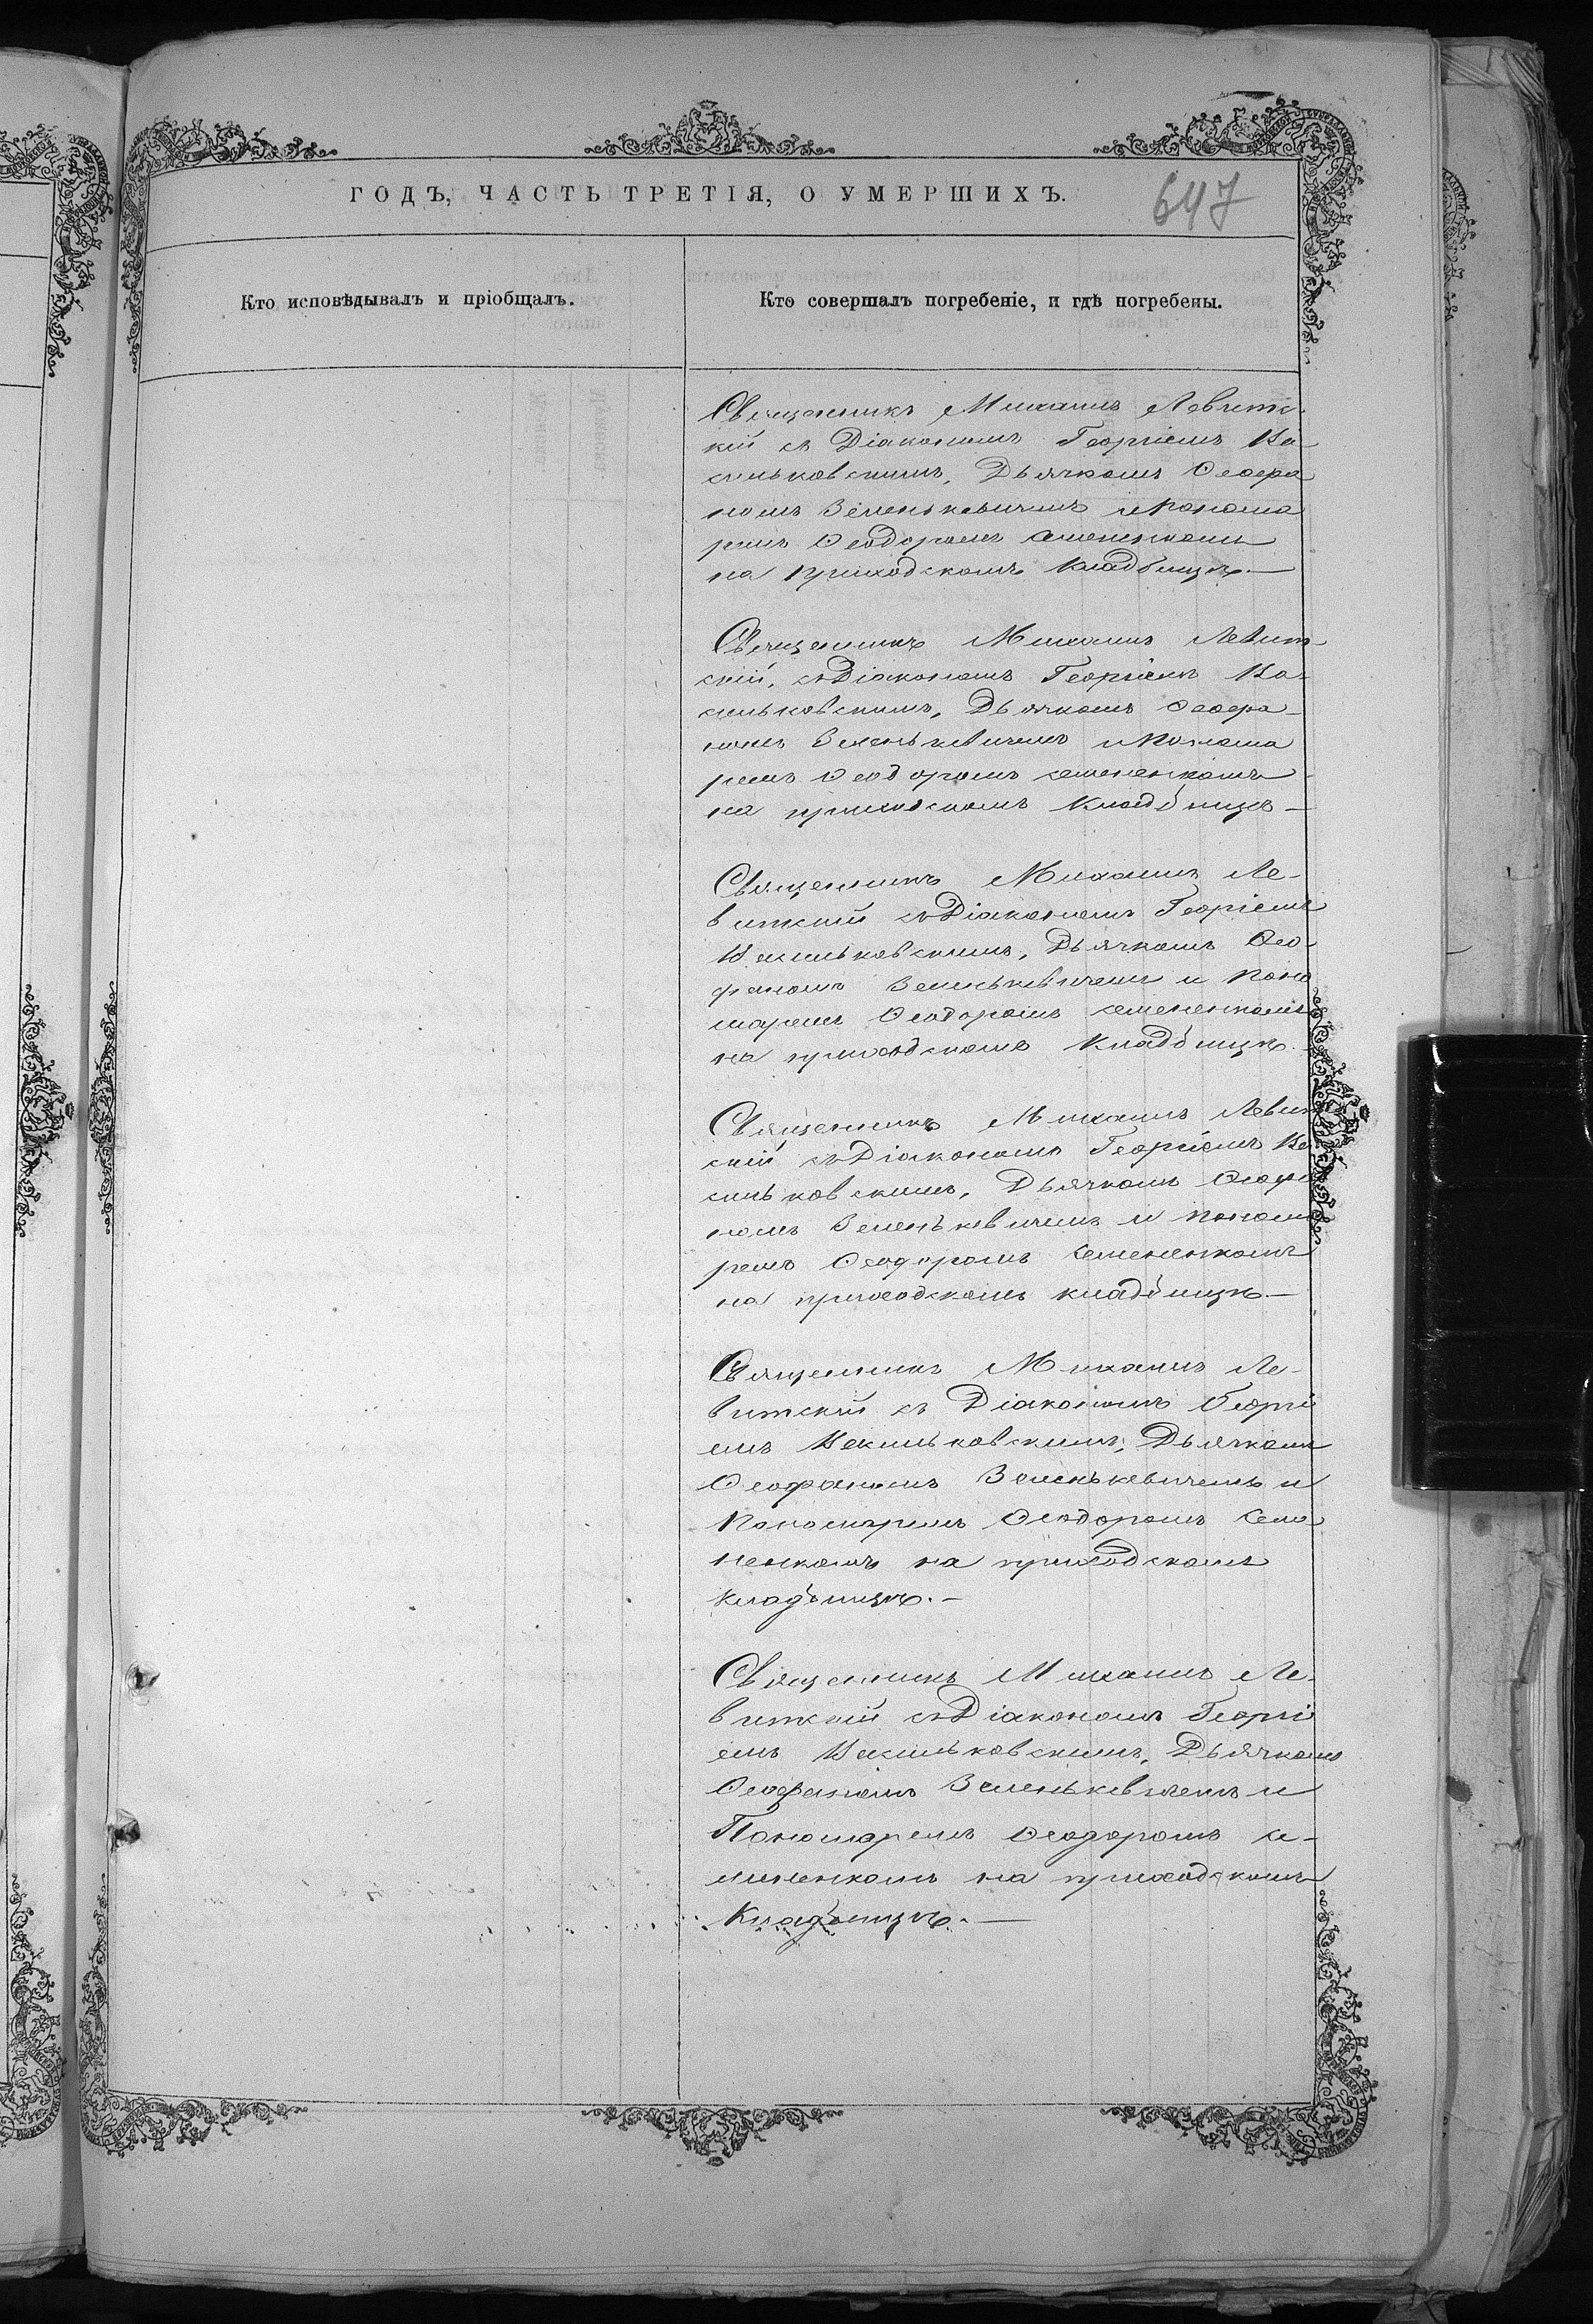 ГОДЪ, ЧАСТЬ ТРЕТІЯ, О УМЕРШИХЪ.
647
Кто исповѣдывалъ и пріобщалъ.
Кто совершалъ погребеніе, и гдѣ погребены.
Священникъ Михаилъ Левит-
кій съ Діакономъ Георгіемъ Ва-
сильковскимъ, Дьячкомъ Ѳеофа
номъ Зеленькевичемъ и Понома
ремъ Ѳеодоромъ Семененкомъ
на приходскомъ кладбищѣ.—
Священникъ Михаилъ Левит-
скій, съ Діакономъ Георгіемъ Ва-
сильковскимъ, Дьячкомъ Ѳеофа-
номъ Зеленькевичемъ и Понома
ремъ Ѳеодоромъ Семененкомъ
на приходскомъ Кладбищѣ—
Священникъ Михаилъ Ле-
витскій съ Діакономъ Георгіемъ
Васильковскимъ, Дьячкомъ Ѳео-
фаномъ Зеленькевичемъ и Поно
маремъ Ѳеодоромъ Семененкомъ
на приходскомъ Кладбищѣ.
Священникъ Михаилъ Левит
скій съ Діакономъ Георгіемъ Ва
сильковскимъ, Дьячкомъ Ѳеофа
номъ Зеленькевичемъ и Понома
ремъ Ѳеодоромъ Семененкомъ
на приходскомъ кладбищѣ.—
Священникъ Михаилъ Ле-
витскій съ Діакономъ Георгі
емъ Васильковскимъ, Дьячкомъ
Ѳеофаномъ Зеленькевичемъ и
Пономаремъ Ѳеодоромъ Семе
ненкомъ на приходскомъ
Кладбищѣ.—
Священникъ Михаилъ Ле-
витскій съ Діакономъ Георгі
емъ Васильковскимъ, Дьячкомъ
Ѳеофаномъ Зеленькевичемъ и
Пономаремъ Ѳеодоромъ Се-
мененкомъ на приходскомъ
Кладбищѣ.—